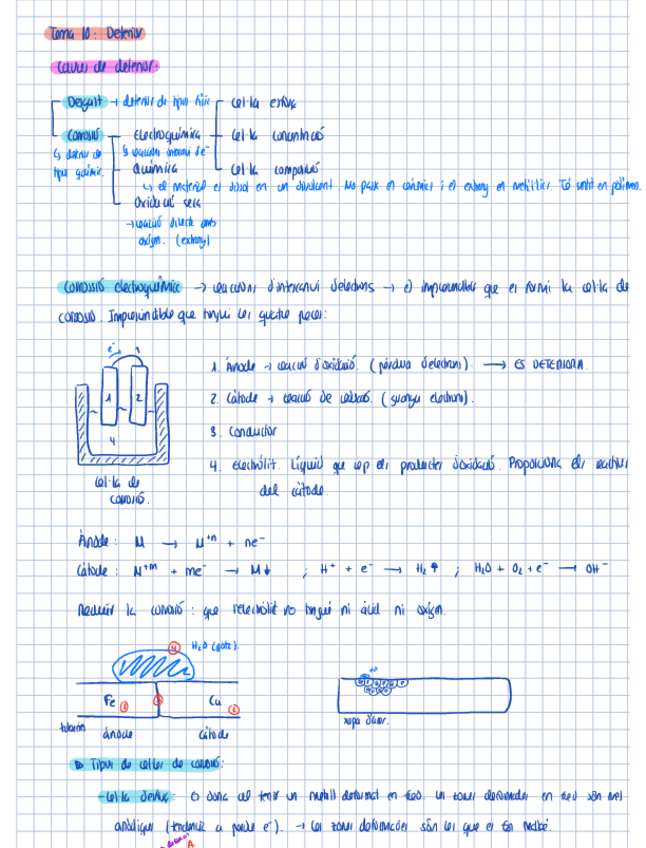 Tema 10: Deterior
Causes de deterior:
Desgast → deterior de tipus físic
Cel·la esforç
Corrosió
Electroquímica
Cel·la concentració
↳ deterior de tipus químic.
↳ reaccions intercanvi de e⁻
Química
Cel·la composició
↳ el material es dissol en un dissolvent. No passa en ceràmics i és estrany en metàl·lics. Té sentit en polímers.
Oxidació seca
→ reacció directe amb oxigen. (estrany)
Corrosió electroquímica → reaccions d'intercanvi d'electrons → és imprescindible que es formi la cel·la de
corrosió. Imprescindible que tingui les quatre peces:
e⁻ 3
1 2
4
Cel·la de
corrosió.
1. Ànode → reacció d'oxidació. (pèrdua d'electrons). → ES DETERIORA.
2. Càtode → reacció de reducció. (guanya electrons).
3. Conductor
4. Electròlit. Líquid que rep els productes d'oxidació. Proporciona els reactius
del càtode.
Ànode: M → M⁺ⁿ + ne⁻
Càtode: N⁺ᵐ + me⁻ → M↓ ; H⁺ + e⁻ → H₂↑ ; H₂O + O₂ + e⁻ → OH⁻
Reduir la corrosió: que l'electròlit no tingui ni àcid ni oxigen.
4 H₂O (gota).
Fe 1 3 Cu 2
ànode càtode
▷ Tipus de cel·les de corrosió:
- Cel·la d'esforç: es dona al tenir un metall deformat en fred. Les zones deformades en fred són més
anòdiques (tendència a perdre e⁻). → Les zones deformades són les que es fan malbé.